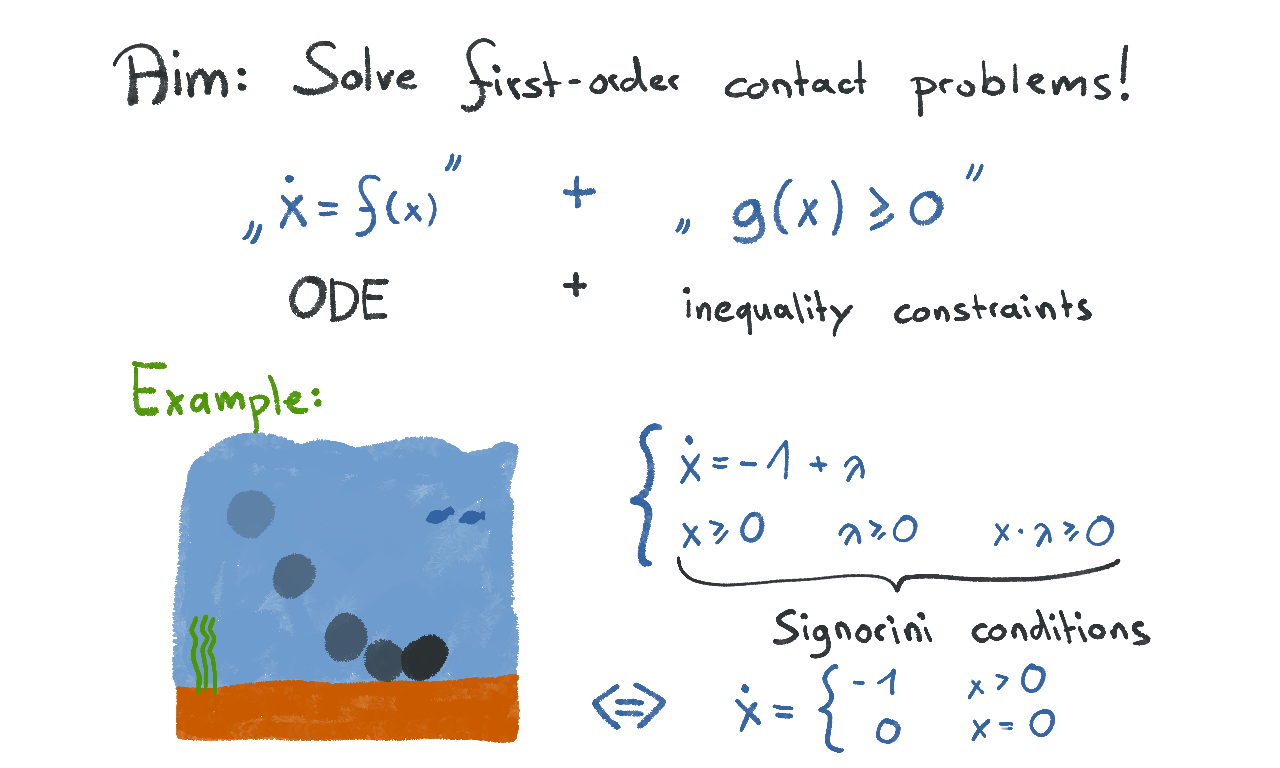 Aim: Solve first-order contact problems!
„ ẋ = f(x) ” + „ g(x) ⩾ 0 ”
ODE + inequality constraints
Example:
ẋ = -1 + λ
x ⩾ 0 λ ⩾ 0 x · λ ⩾ 0
Signorini conditions
<=> ẋ = { -1 x > 0
0 x = 0